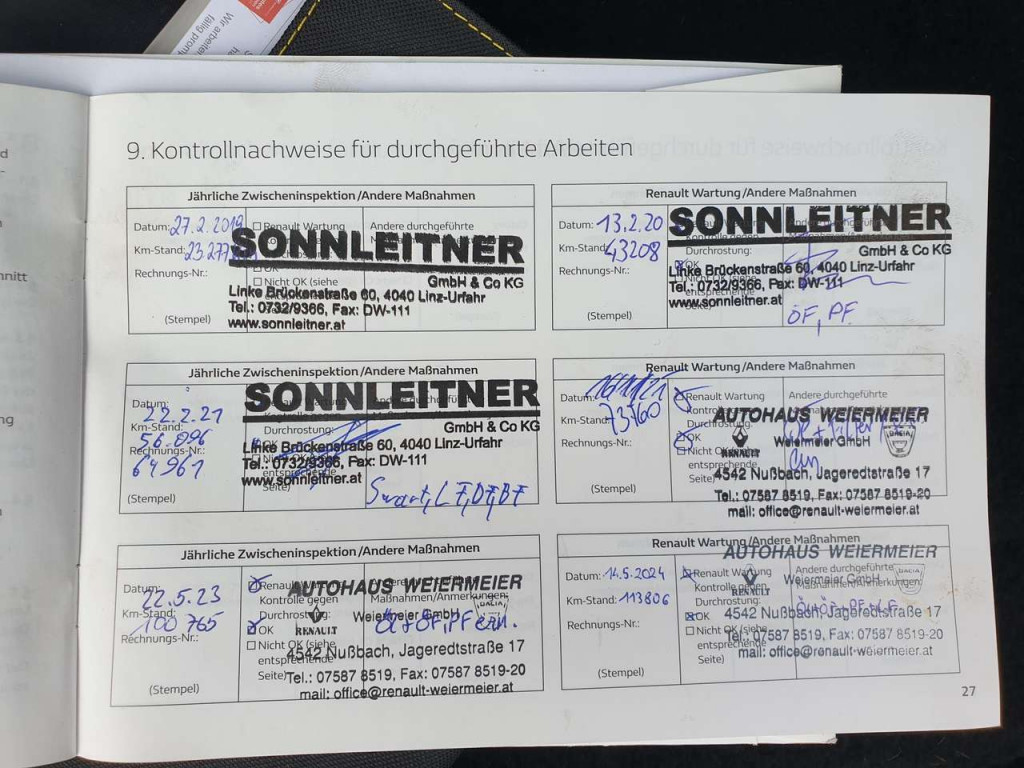 Wir arbeiten
fällig promp
d
nnitt
ng
n
9. Kontrollnachweise für durchgeführte Arbeiten
Jährliche Zwischeninspektion/Andere Maßnahmen
Datum: 27.2.2019
Km-Stand: 23277
Rechnungs-Nr.:
(Stempel)
Renault Wartung
OK
Nicht OK (siehe
Andere durchgeführte
SONNLEITNER
GmbH & Co KG
Linke Brückenstraße 60, 4040 Linz-Urfahr
Tel.: 0732/9366, Fax: DW-111
www.sonnleitner.at
Renault Wartung/Andere Maßnahmen
Datum: 13.2.20
Km-Stand: 43208
Rechnungs-Nr.:
(Stempel)
Durchrostung:
OK
Nicht OK (siehe
entsprechende
Andere durchgeführte
SONNLEITNER
GmbH & Co KG
Linke Brückenstraße 60, 4040 Linz-Urfahr
Tel.: 0732/9366, Fax: DW-111
www.sonnleitner.at
ÖF, PF.
Jährliche Zwischeninspektion/Andere Maßnahmen
Datum: 22.2.21
Km-Stand: 56.096
Rechnungs-Nr.: 64961
(Stempel)
Durchrostung:
OK
entsprechende
Seite)
SONNLEITNER
GmbH & Co KG
Linke Brückenstraße 60, 4040 Linz-Urfahr
Tel.: 0732/9366, Fax: DW-111
www.sonnleitner.at
Renault Wartung/Andere Maßnahmen
Datum:
Km-Stand: 73760
Rechnungs-Nr.:
(Stempel)
Renault Wartung
Durchrostung:
OK
Nicht OK
entsprechende
Seite)
Andere durchgeführte
AUTOHAUS WEIERMEIER
RENAULT
Weiermeier GmbH
DACIA
4542 Nußbach, Jageredtstraße 17
Tel.: 07587 8519, Fax: 07587 8519-20
mail: office@renault-weiermeier.at
Jährliche Zwischeninspektion/Andere Maßnahmen
Datum: 22.5.23
Km-Stand: 100 765
Rechnungs-Nr.:
(Stempel)
Renault Wartung
Kontrolle gegen
Durchrostung:
OK
Nicht OK (siehe
entsprechende
Seite)
Maßnahmen/Anmerkungen:
AUTOHAUS WEIERMEIER
RENAULT
Weiermeier GmbH
DACIA
4542 Nußbach, Jageredtstraße 17
Tel.: 07587 8519, Fax: 07587 8519-20
mail: office@renault-weiermeier.at
Renault Wartung/Andere Maßnahmen
Datum: 14.5.2024
Km-Stand: 113806
Rechnungs-Nr.:
(Stempel)
Renault Wartung
Kontrolle gegen
Durchrostung:
OK
Nicht OK (siehe
entsprechende
Seite)
Andere durchgeführte
Maßnahmen/Anmerkungen:
AUTOHAUS WEIERMEIER
RENAULT
Weiermeier GmbH
DACIA
4542 Nußbach, Jageredtstraße 17
Tel.: 07587 8519, Fax: 07587 8519-20
mail: office@renault-weiermeier.at
27